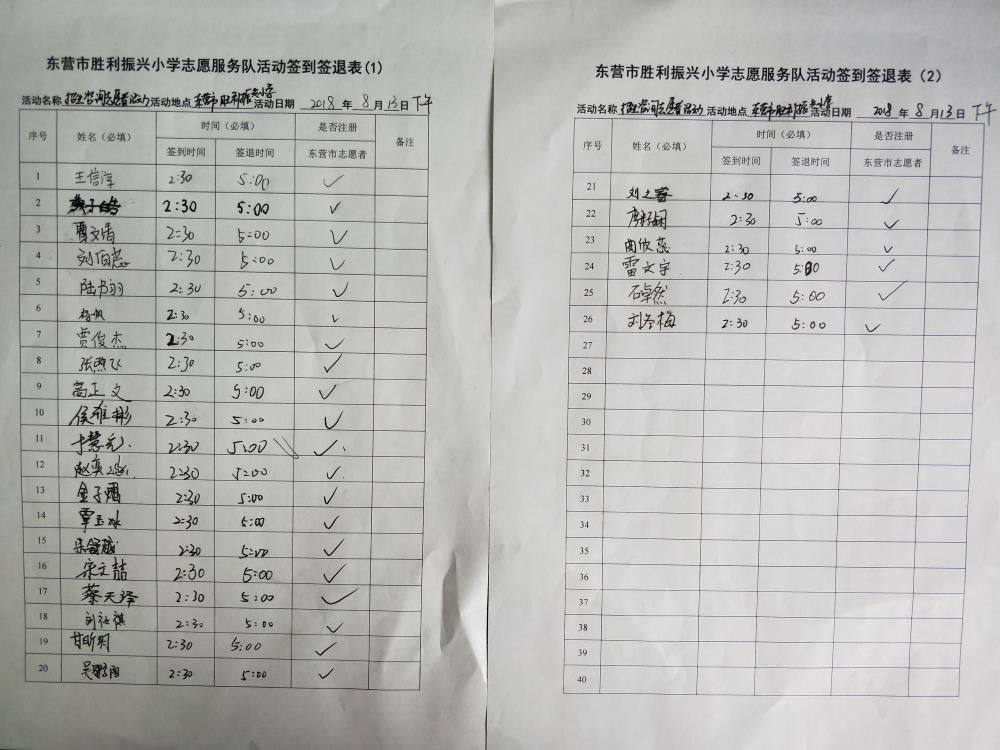 东营市胜利振兴小学志愿服务队活动签到签退表(1)
活动名称 招生咨询志愿者活动 活动地点 东营市胜利振兴小学 活动日期 2018 年 8 月 13 日 下午
序号 姓名（必填） 时间（必填） 是否注册 备注
签到时间 签退时间 东营市志愿者
1 王信泽 2:30 5:00 ✓
2 2:30 5:00 ✓
3 曹文清 2:30 5:00 ✓
4 刘伯彦 2:30 5:00 ✓
5 陆书羽 2:30 5:00 ✓
6 杨帆 2:30 5:00 ✓
7 贾俊杰 2:30 5:00 ✓
8 张熙飞 2:30 5:00 ✓
9 高正文 2:30 5:00 ✓
10 侯雅彬 2:30 5:00 ✓
11 2:30 5:00 ✓
12 2:30 5:00 ✓
13 金子熠 2:30 5:00 ✓
14 覃玉冰 2:30 5:00 ✓
15 2:30 5:00 ✓
16 宋文喆 2:30 5:00 ✓
17 蔡天泽 2:30 5:00 ✓
18 刘社祺 2:30 5:00 ✓
19 甘昕玥 2:30 5:00 ✓
20 2:30 5:00 ✓
东营市胜利振兴小学志愿服务队活动签到签退表（2）
活动名称 招生咨询志愿者活动 活动地点 东营市胜利振兴小学 活动日期 2018 年 8 月 13 日 下午
序号 姓名（必填） 时间（必填） 是否注册 备注
签到时间 签退时间 东营市志愿者
21 刘之睿 2:30 5:00 ✓
22 2:30 5:00 ✓
23 曲欣蕊 2:30 5:00 ✓
24 雷文宇 2:30 5:00 ✓
25 石卓然 2:30 5:00 ✓
26 刘冬梅 2:30 5:00 ✓
27
28
29
30
31
32
33
34
35
36
37
38
39
40